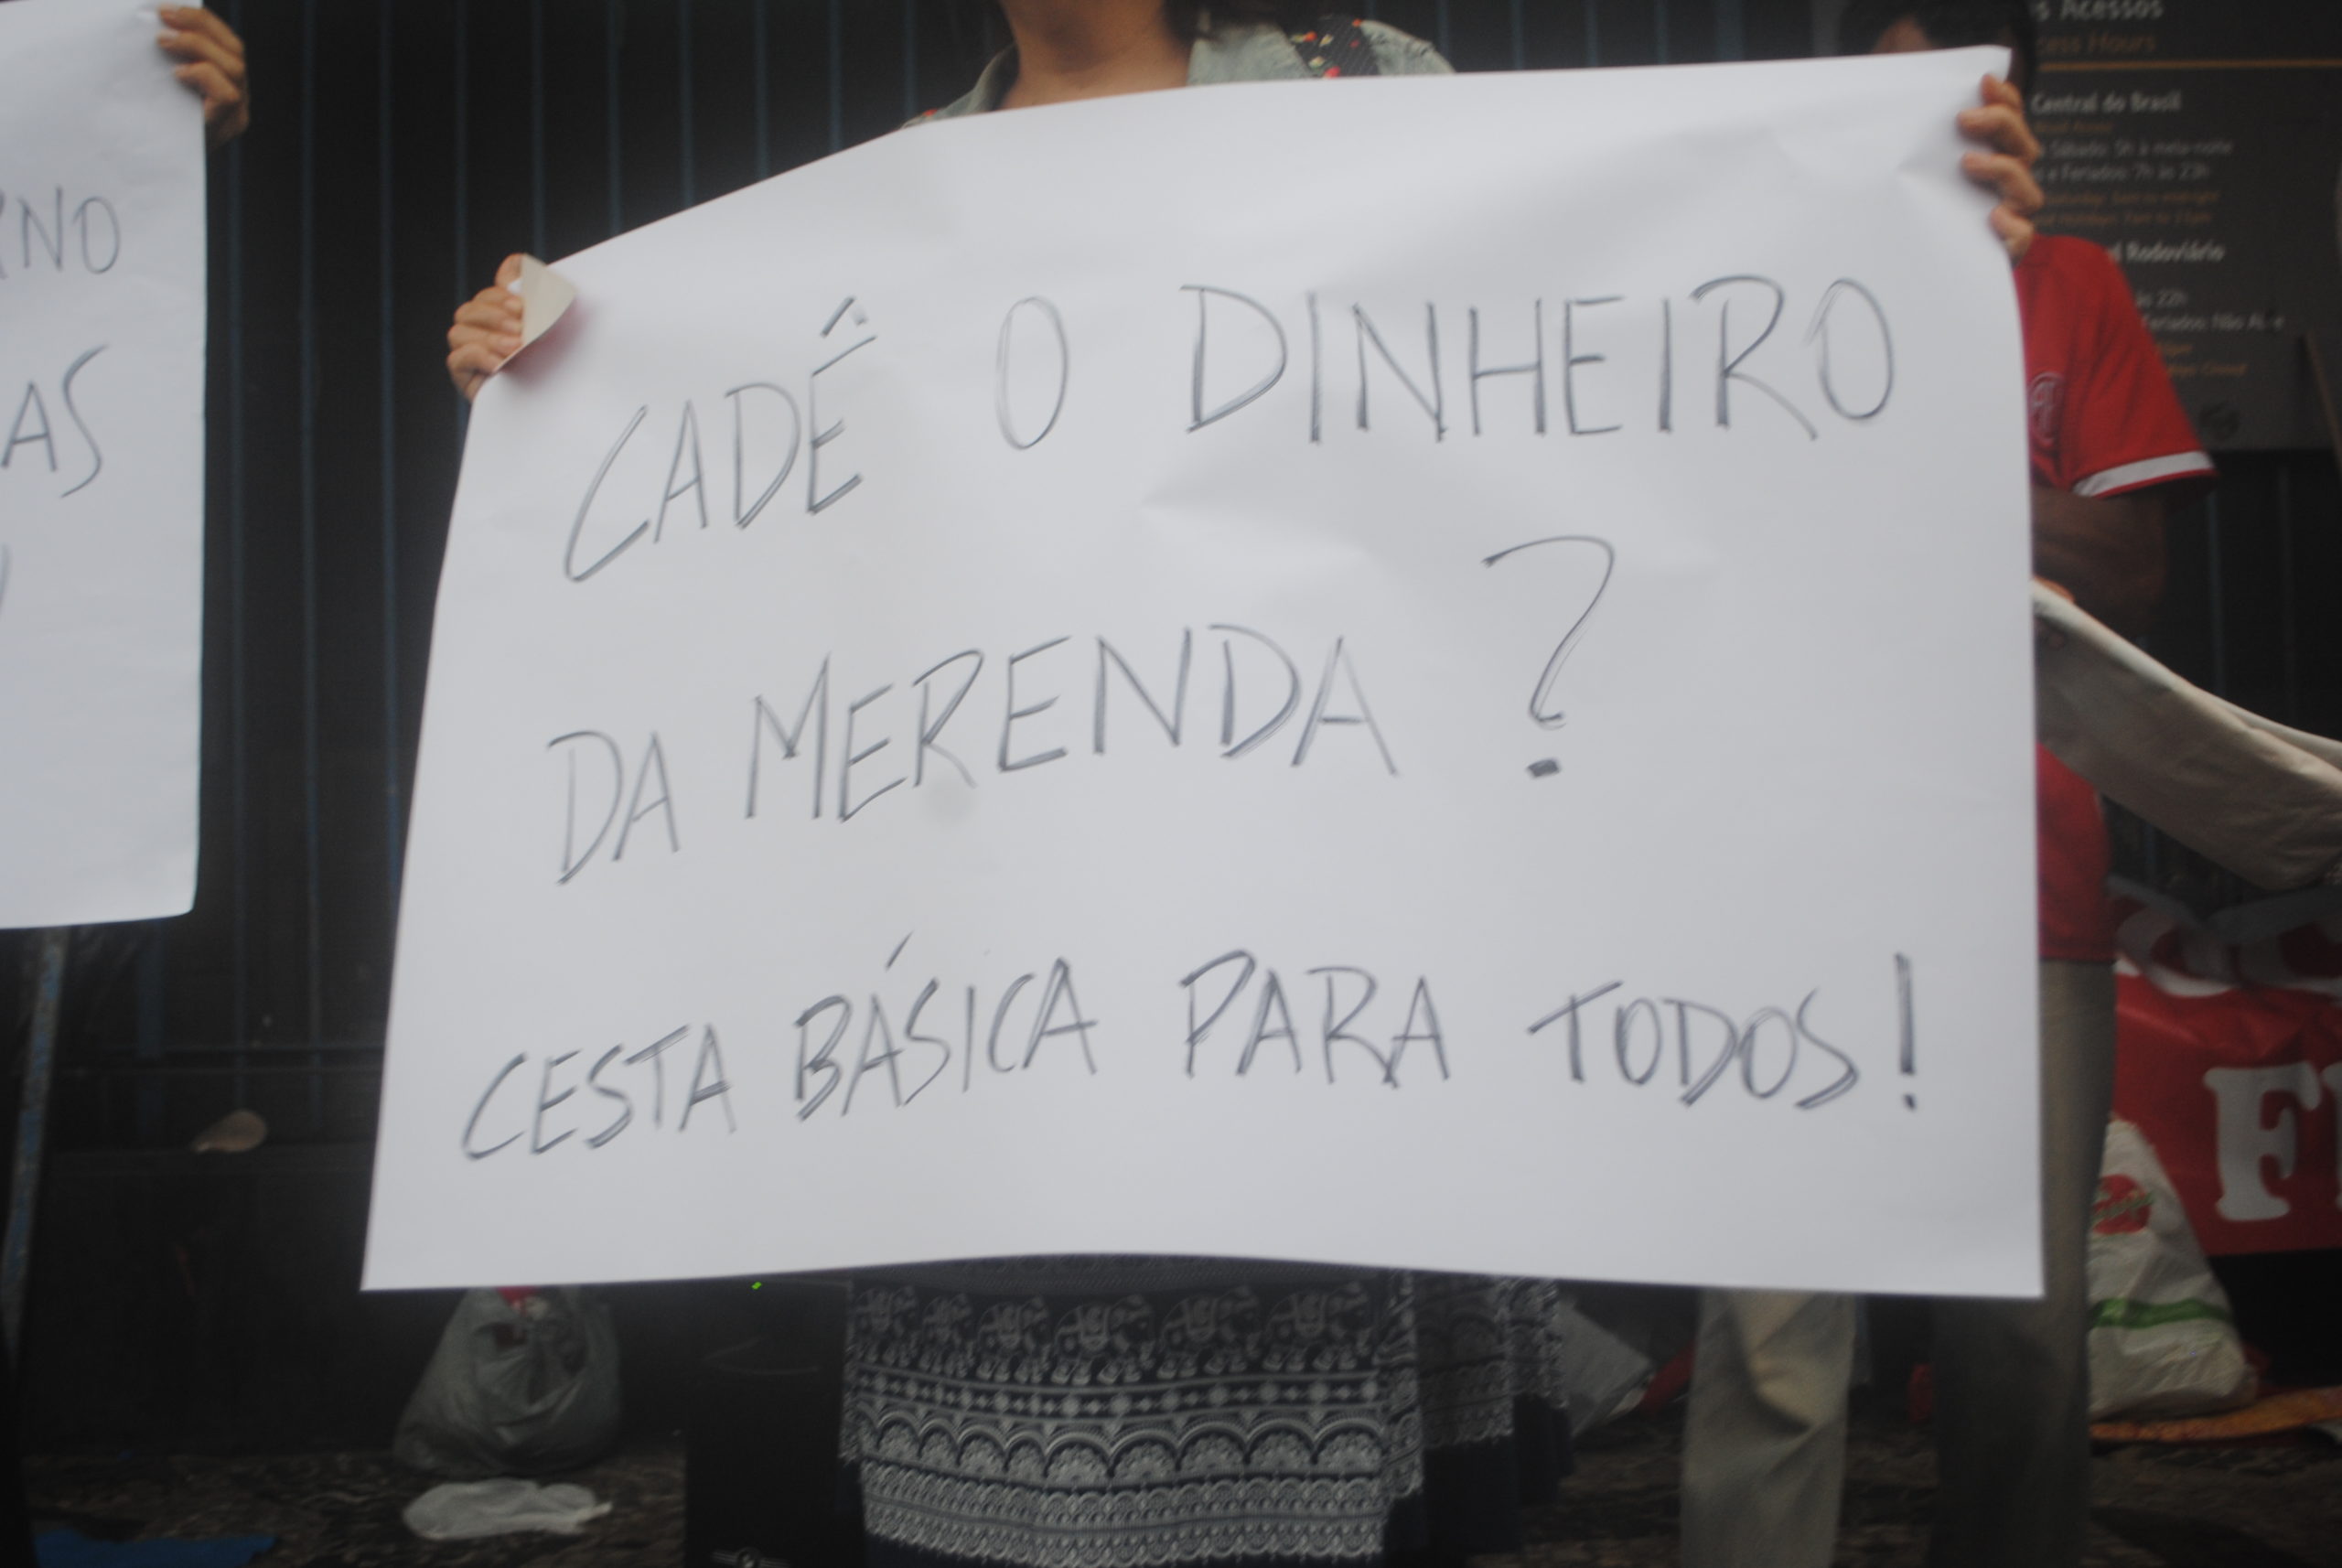 RNO
AS
CADÊ O DINHEIRO
DA MERENDA ?
CESTA BÁSICA PARA TODOS!
s Acessos
cess Hours
Central do Brasil
Sábado: 5h à meia-noite
e Feriados: 7h às 23h
Rodoviário
às 22h
Não
F